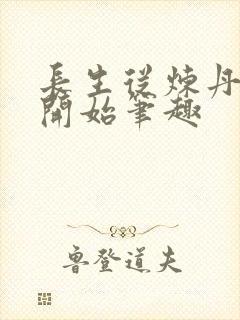 長生從煉丹
開始筆趣
魯登道夫